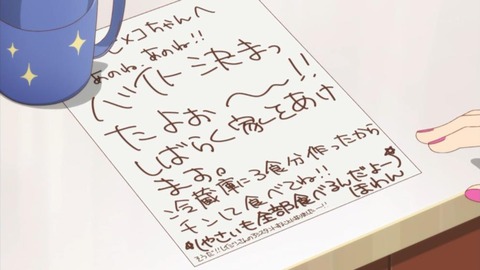 ヒメコちゃんへ
あのね、あのね!!
バイト決まっ
たよぉ〜!!
しばらく家をあけ
まぁす。
冷蔵庫に3食分作ったから
チンして食べてね!!
やさいも全部食べるんだよー♪
ほわん